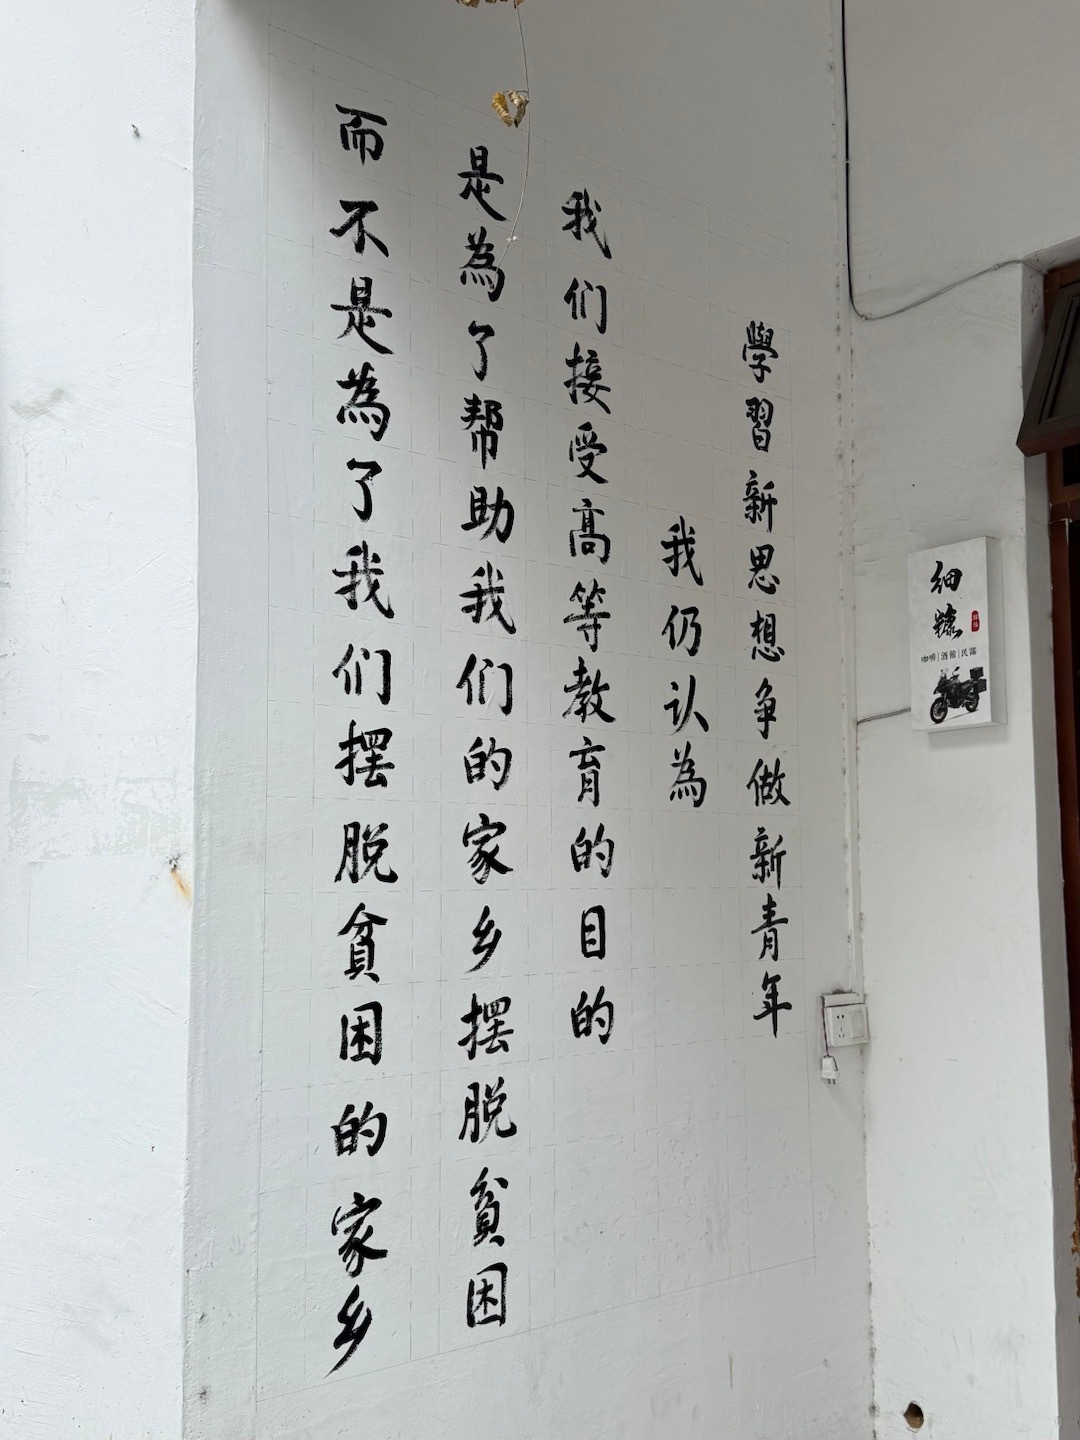 學習新思想争做新青年
我仍认為
我们接受高等教育的目的
是為了帮助我们的家乡摆脱貧困
而不是為了我们摆脱貧困的家乡
细
咖啡|酒館|民謠